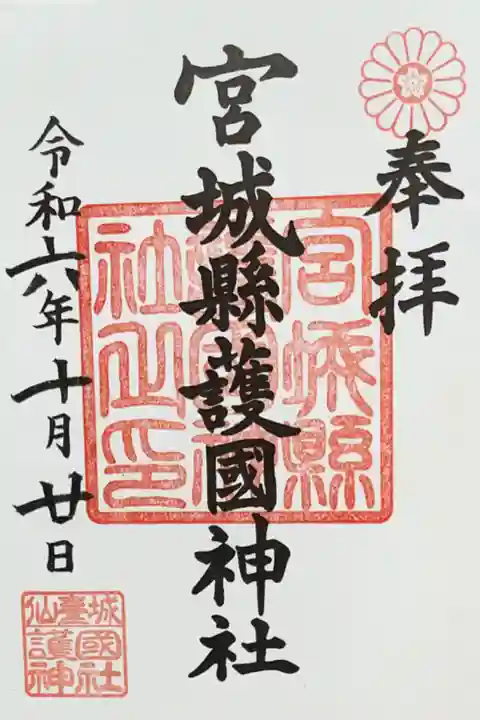 奉拝
宮城縣護國神社
令和六年十月廿日
宮城縣
護國神
社之印
仙臺城
護國神社